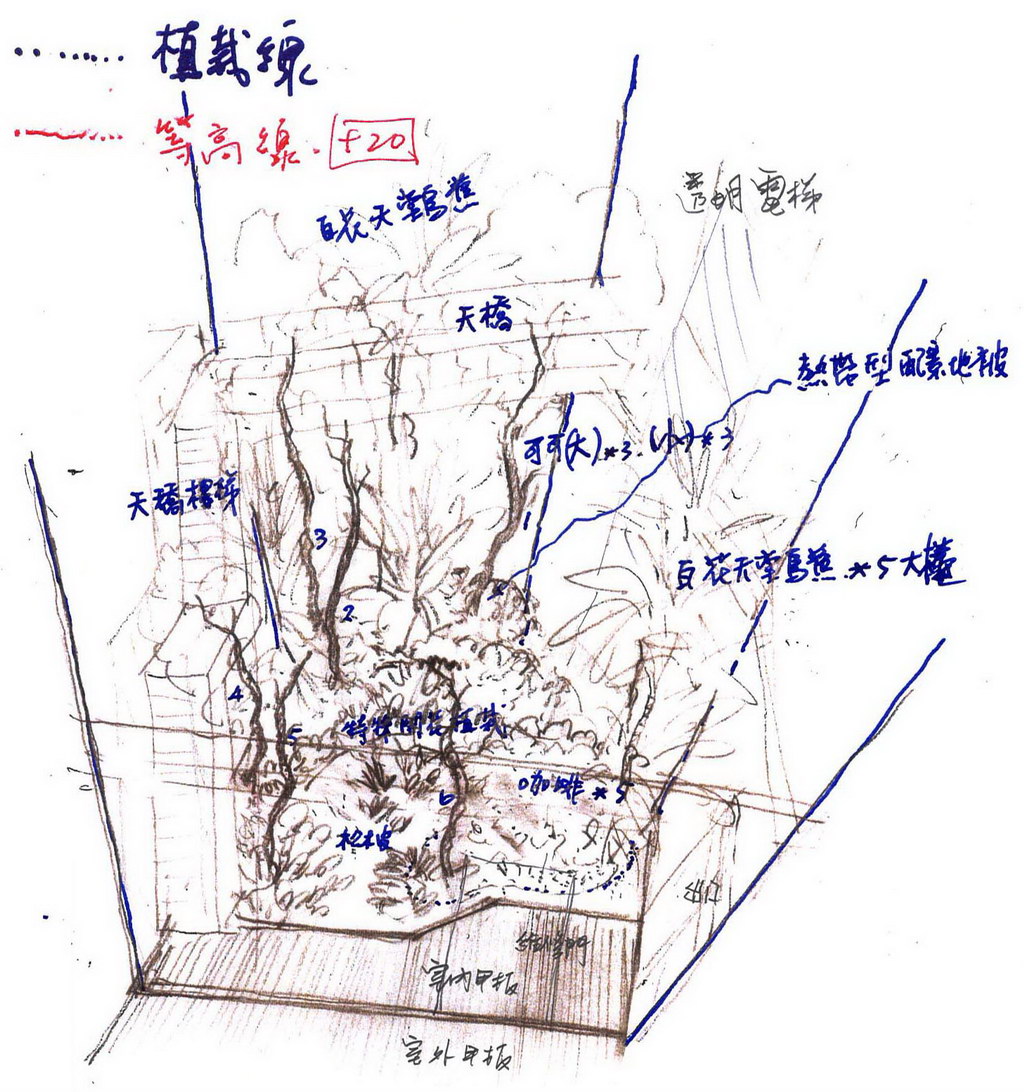 植栽線
等高線. +20
透明電梯
白花天堂鳥蕉
天橋
熱帶型配景地被
可可(大)*3.(小)*3
天橋樓梯
3
1
白花天堂鳥蕉*5大欉
2
4
5
特殊開花植栽
咖啡*5
6
地被
出口
維修門
室內甲板
室外甲板